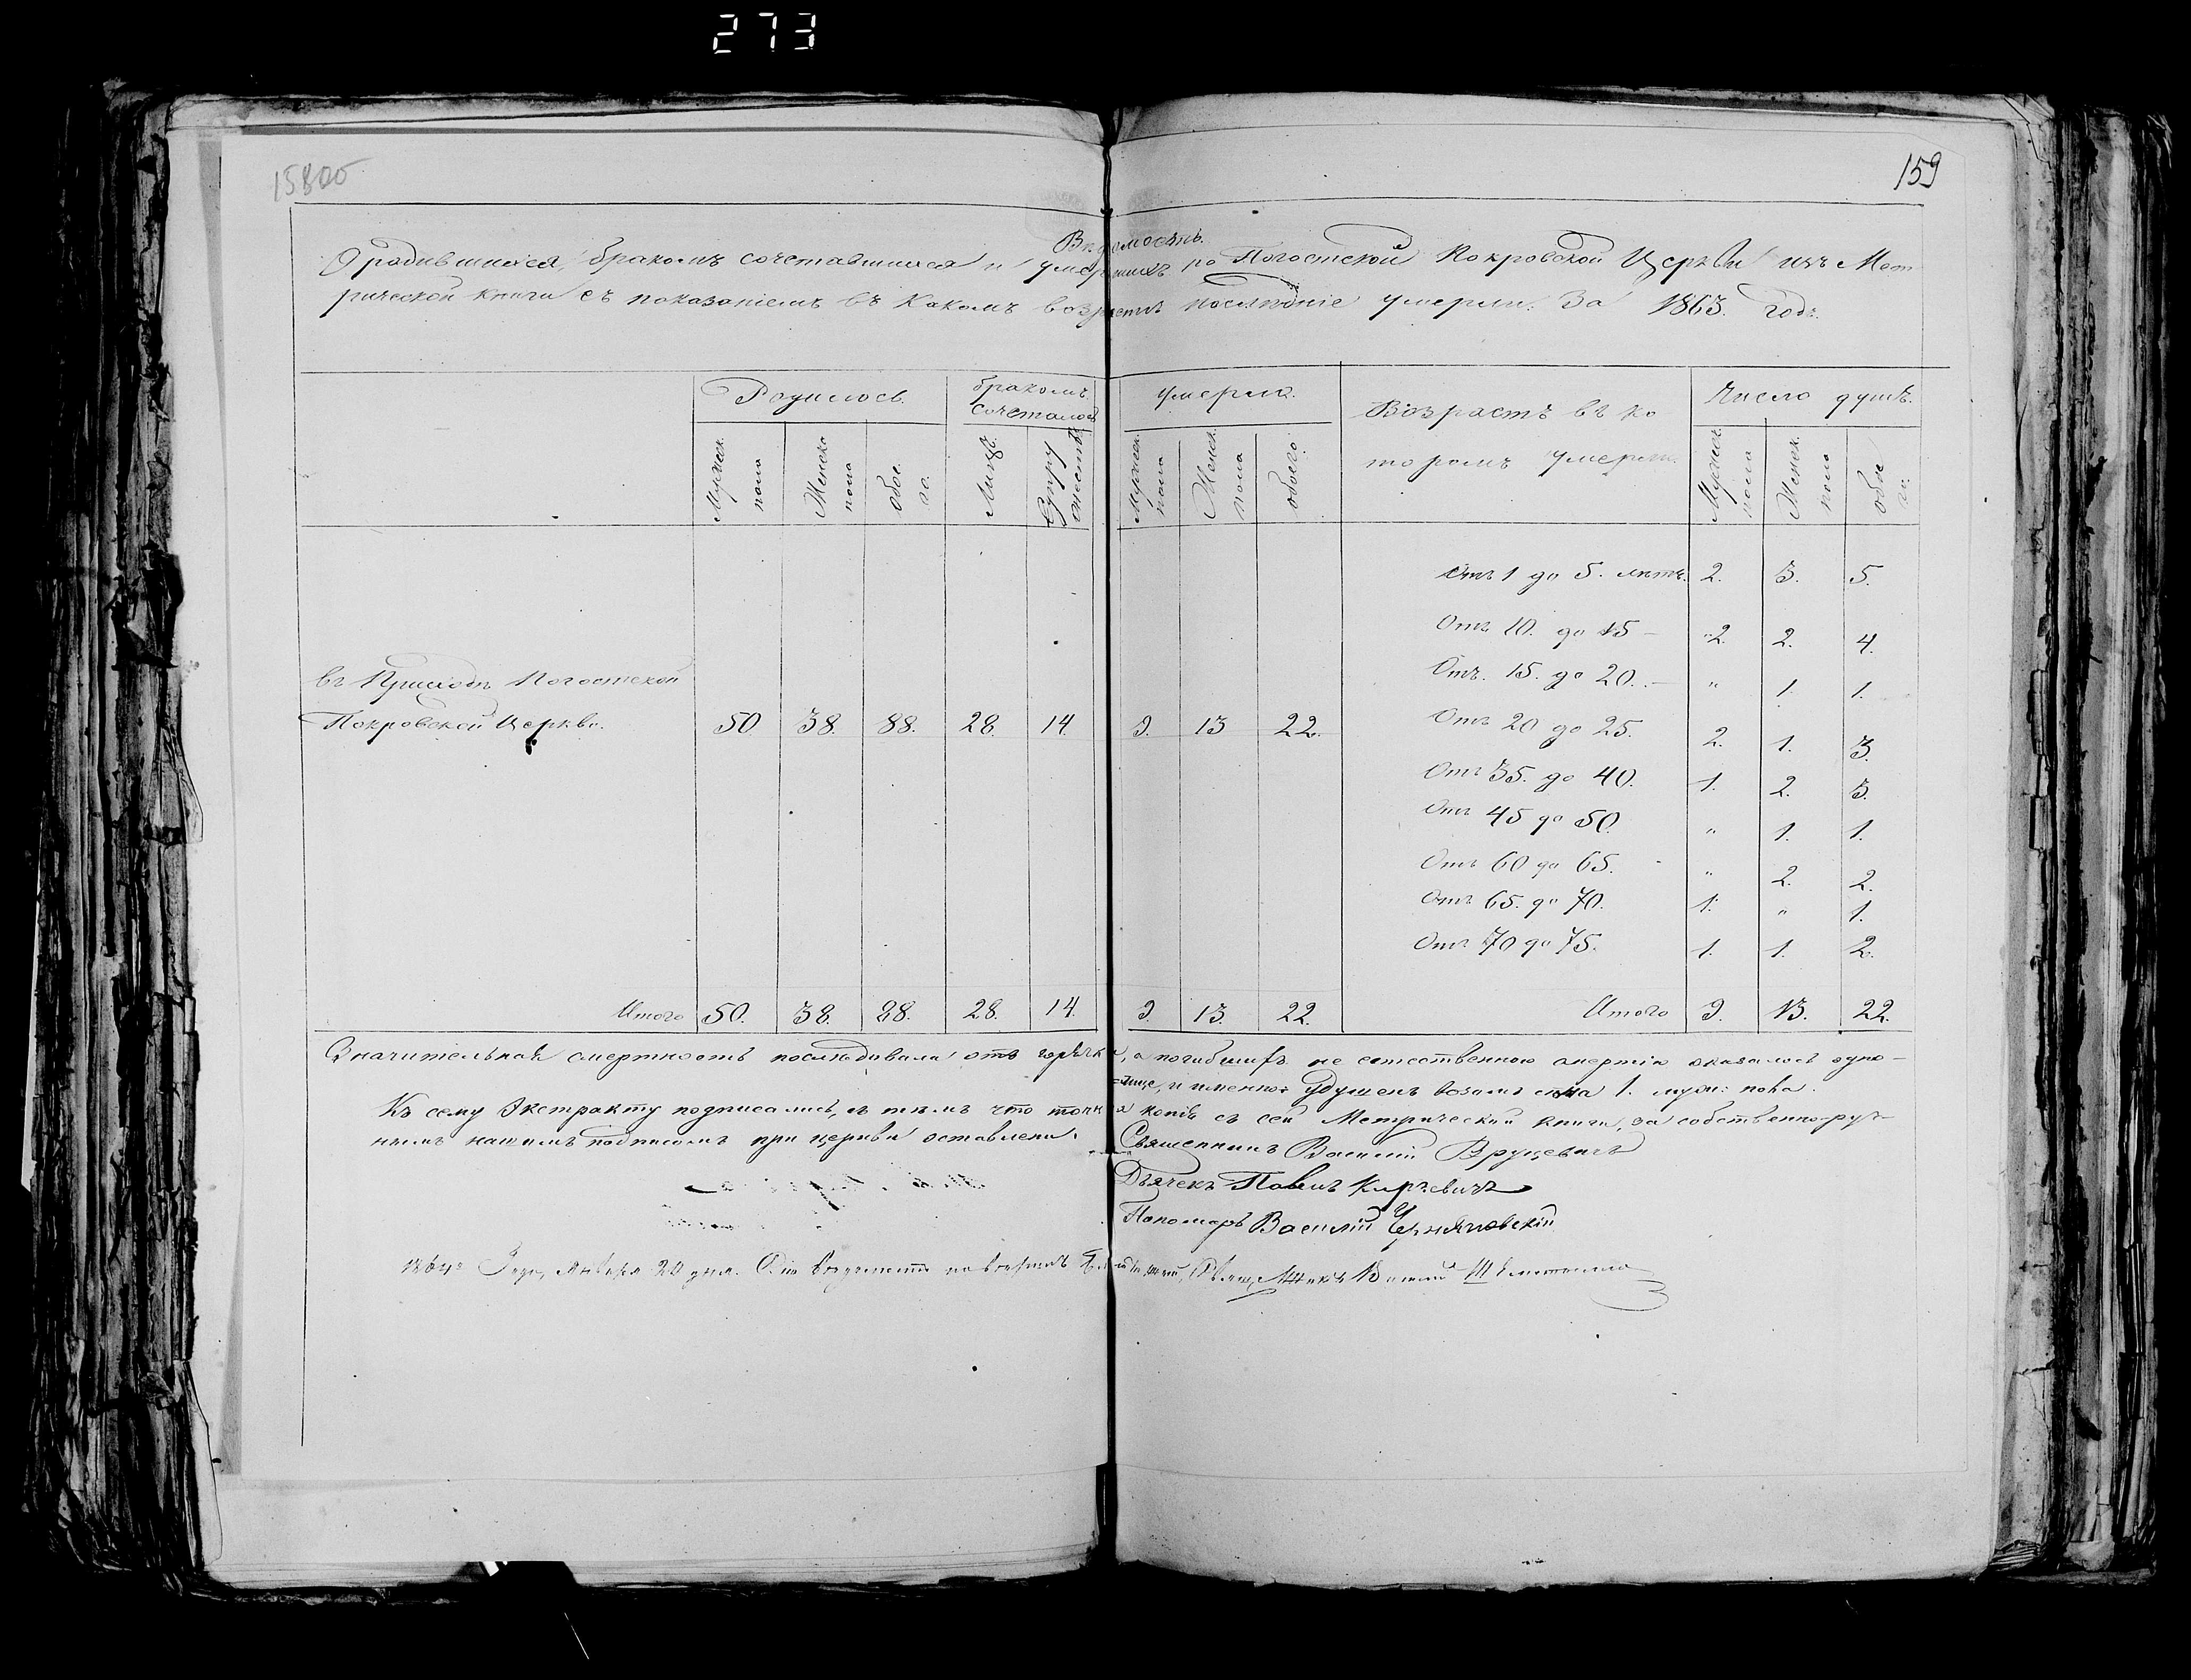 273
158об
159
Ведомость.
О родившихся, бракомъ сочетавшихся и умершихъ по Погостской Покровской Церкви изъ Мет-
рической книги съ показаніемъ въ какомъ возрастѣ послѣдніе умерли. За 1863. годъ.
Родилось. бракомъ сочеталось умерло. Возрастъ въ ко торомъ умерли. Число душъ.
Мужеск. пола Женска пола обое го. Лицъ. Супру жествъ Мужеск. пола Женск. пола обоего. Мужеск. пола Женск. пола обое го.
Отъ 1 до 5. лѣтъ. 2. 3. 5.
Отъ 10. до 15 – „2. 2. 4.
Отъ. 15. до 20. – „ 1. 1.
въ Приходѣ Погостской
Покровской Церкви. 50 38. 88. 28. 14. 9. 13 22.
Отъ 20 до 25. 2. 1. 3.
Отъ 35. до 40. 1. 2. 3.
Отъ 45 до 50. „ 1. 1.
Отъ 60 до 65. „ 2. 2.
Отъ 65. до 70. 1. „ 1.
Отъ 70 до 75. 1. 1. 2.
Итого 50. 38. 88. 28. 14. 9. 13. 22. Итого 9. 13. 22.
Значительная смертность послѣдовала отъ горячки, а погибшихъ не естественною смертію оказалось одно-
лице, и именно: удушенъ возомъ сѣна 1. муж: пола.
Къ сему Экстракту подписались, съ тѣмъ что точная копія съ сей Метрической книги, за собственно-руч-
нымъ нашимъ подписомъ при церкви оставлена.
Священникъ Василій Вруцевичъ
Дьячекъ Павелъ Киркевичъ
Пономарь Василій Черняковскій
1864го Года, Января 20 дня. Сію ведомость